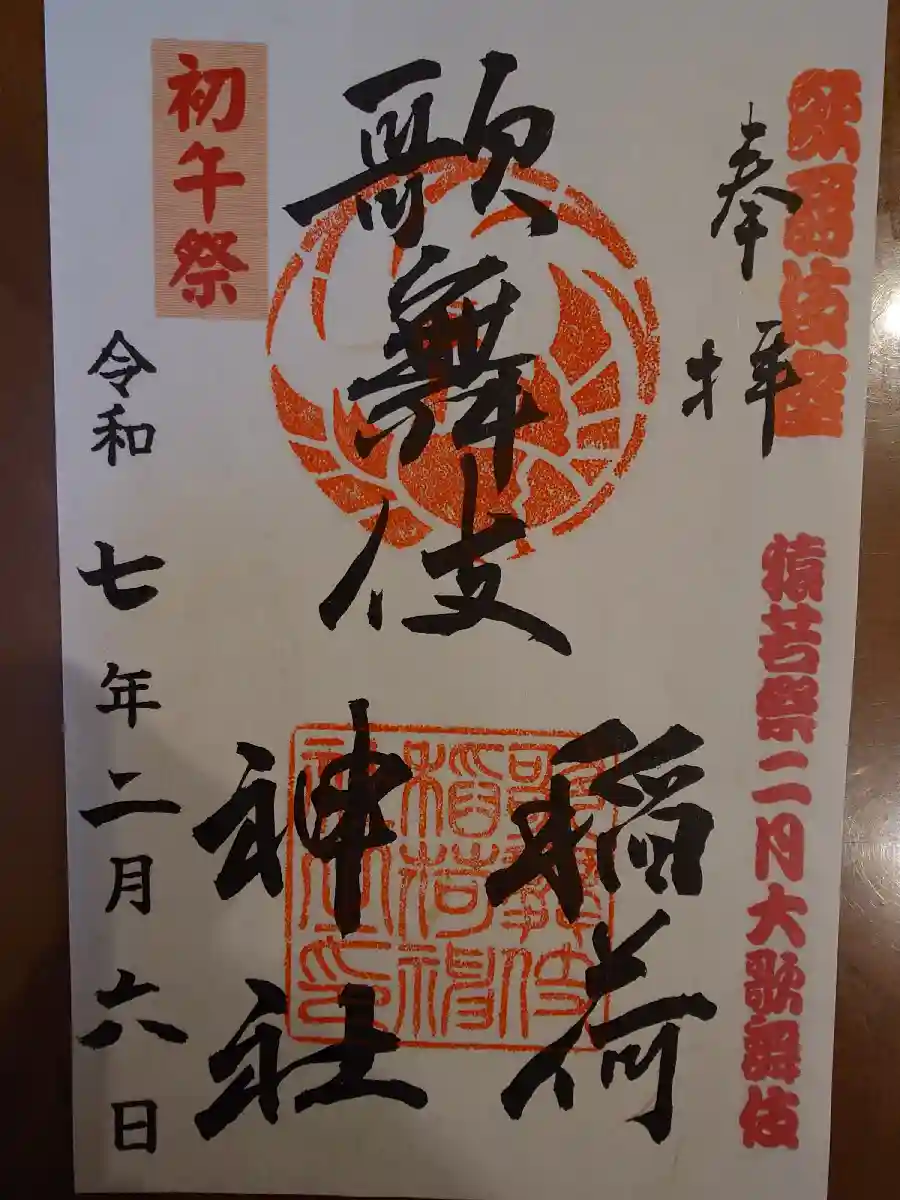 歌舞伎座
奉拝
猿若祭二月大歌舞伎
歌舞伎
稲荷
神社
歌舞伎
稲荷神
社之印
初午祭
令和七年二月六日